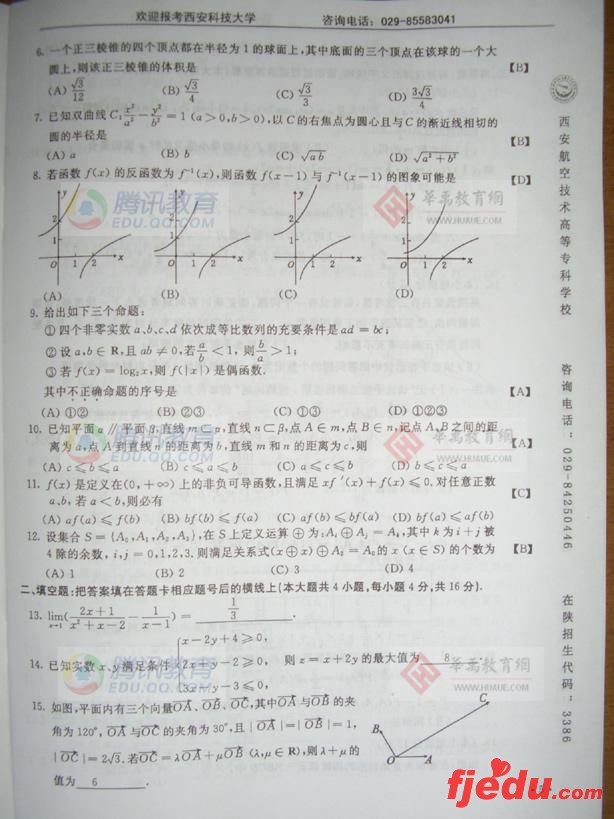 欢迎报考西安科技大学 咨询电话：029-85583041
6. 一个正三棱锥的四个顶点都在半径为 1 的球面上,其中底面的三个顶点在该球的一个大
圆上,则该正三棱锥的体积是 【B】
(A) √3/12 (B) √3/4 (C) √3/3 (D) 3√3/4
7. 已知双曲线 C: x²/a² − y²/b² = 1 (a＞0,b＞0),以 C 的右焦点为圆心且与 C 的渐近线相切的
圆的半径是 【B】
(A) a (B) b (C) √ab (D) √a²+b²
8. 若函数 f(x) 的反函数为 f⁻¹(x),则函数 f(x−1) 与 f⁻¹(x−1) 的图象可能是 【D】
y 2 1 O 1 2 x
y 2 1 O 1 2 x
y 2 1 O 1 2 x
y 2 1 O 1 2 x
(A) (B) (C) (D)
9. 给出如下三个命题:
① 四个非零实数 a、b、c、d 依次成等比数列的充要条件是 ad = bc;
② 设 a,b∈R,且 ab ≠ 0,若 a/b ＜ 1,则 b/a ＞ 1;
③ 若 f(x) = log₂x,则 f(|x|) 是偶函数.
其中不正确命题的序号是 【A】
(A) ①② (B) ②③ (C) ①③ (D) ①②③
10. 已知平面 α ∥ 平面 β,直线 m⊂α,直线 n⊂β,点 A∈m,点 B∈n,记点 A、B 之间的距
离为 a,点 A 到直线 n 的距离为 b,直线 m 和 n 的距离为 c,则 【A】
(A) c≤b≤a (B) a≤c≤b (C) a≤c≤b (D) b≤c≤a
11. f(x) 是定义在(0,+∞) 上的非负可导函数,且满足 xf′(x)+f(x)≤0.对任意正数
a、b,若 a＜b,则必有 【C】
(A) af(a)≤f(b) (B) bf(b)≤f(a) (C) af(b)≤bf(a) (D) bf(a)≤af(b)
12. 设集合 S = {A₀,A₁,A₂,A₃},在 S 上定义运算 ⊕ 为:Aᵢ⊕Aⱼ = Aₖ,其中 k 为 i+j 被
4 除的余数, i,j = 0,1,2,3.则满足关系式(x⊕x)⊕A₂ = A₀的 x (x∈S) 的个数为 【B】
(A) 1 (B) 2 (C) 3 (D) 4
二、填空题:把答案填在答题卡相应题号后的横线上(本大题共 4 小题,每小题 4 分,共 16 分).
13. lim x→1 (2x+1/x²+x−2 − 1/x−1) = 1/3 .
14. 已知实数 x、y满足条件 { x−2y+4≥0, 2x+y−2≥0, 3x−y−3≤0, 则 z = x+2y 的最大值为 8 .
15. 如图,平面内有三个向量OA、OB、OC,其中OA 与OB 的夹
角为 120°,OA 与OC 的夹角为 30°,且 |OA|=|OB| = 1,
|OC| = 2√3.若OC = λOA+μOB (λ,μ∈R),则 λ+μ的
值为 6 .
B C O A
西安航空技术高等专科学校 咨询电话：029-84250446 在陕招生代码：3386
腾讯教育
EDU.QQ.COM
腾讯教育
EDU.QQ.COM
腾讯教育
EDU.QQ.COM
华禹教育網
WWW.HUAUE.COM
华禹教育網
WWW.HUAUE.COM
华禹教育網
WWW.HUAUE.COM
fjedu.com